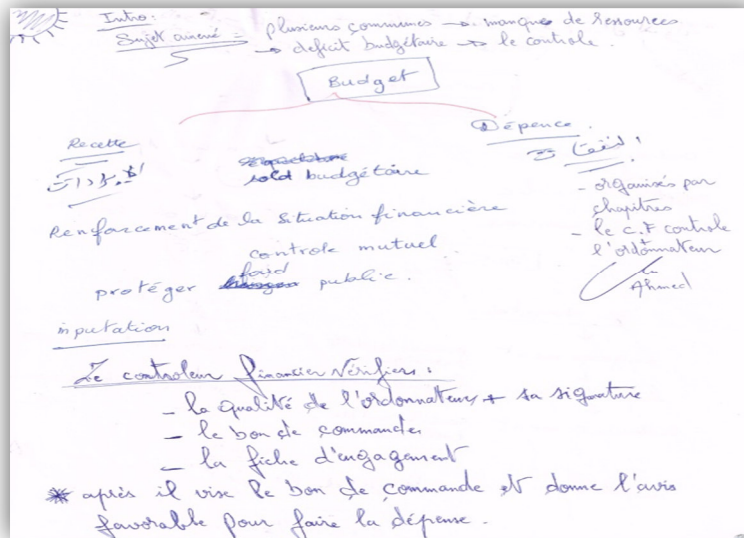 Intro:
Sujet amené = plusieurs communes → manque de ressources
→ deficit budgétaire → le controle.
Budget
Recette
الإيرادات
sold budgétaire
Dépence.
النفقات
- organisés par
chapitres
- le C.F controle
l'ordonnateur
Ahmed
Renforcement de la situation financière
controle mutuel
protéger fond public.
inputation
Le controleur financier Vérifiers :
- la qualité de l'ordonnateur + sa signature
- le bon de commande
- la fiche d'engagement
* après il vise le bon de commande et donne l'avis
favorable pour faire la dépense.